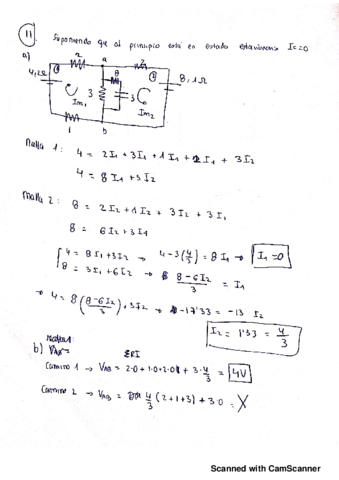 11. Suponiendo que al principio está en estado estacionario Ic=0
a)
2
a
2
4,2Ω
8
8,1Ω
3
3
Im1
Im2
1
b
Malla 1: 4 = 2I1 + 3I1 + 1I1 + 2I1 + 3I2
4 = 8I1 + 3I2
Malla 2: 8 = 2I2 + 1I2 + 3I2 + 3I1
8 = 6I2 + 3I1
4 = 8I1 + 3I2 → 4-3(4/3) = 8I1 → I1 = 0
8 = 3I1 + 6I2 → 8-6I2/3 = I1
→ 4 = 8(8-6I2/3) + 3I2 → -17'33 = -13 I2
I2 = 1'33 = 4/3
b)
ΣRI
Camino 1 → VAB = 2·0 + 1·0 + 2·0 + 3·4/3 = 4V
Camino 2 → VAB = 4/3 (2+1+3) + 3·0 = X
Scanned with CamScanner